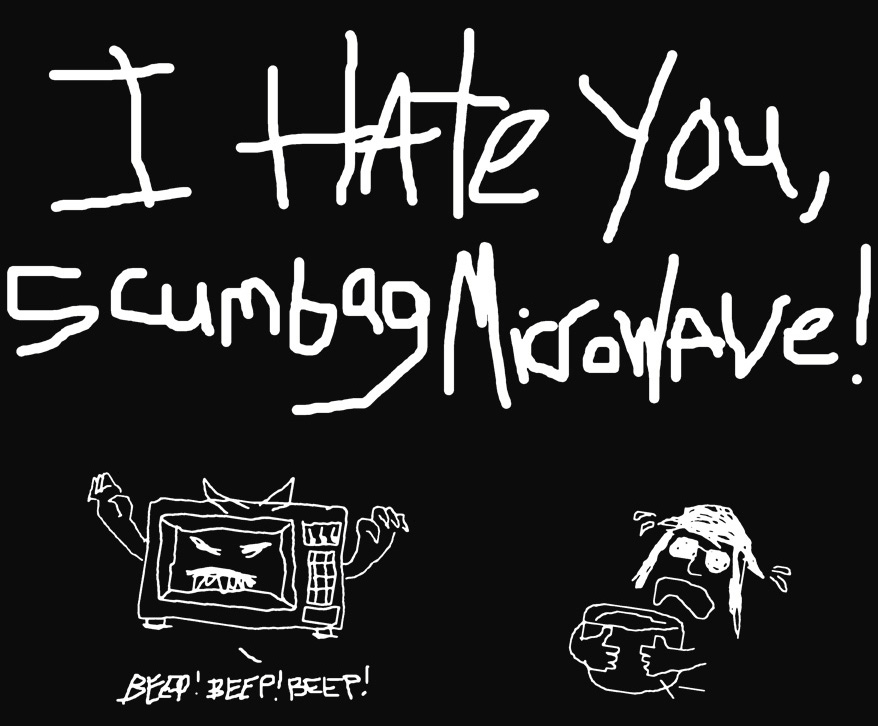 I HAte You,
scumbag MicroWAVe!
BEEP! BEEP! BEEP!